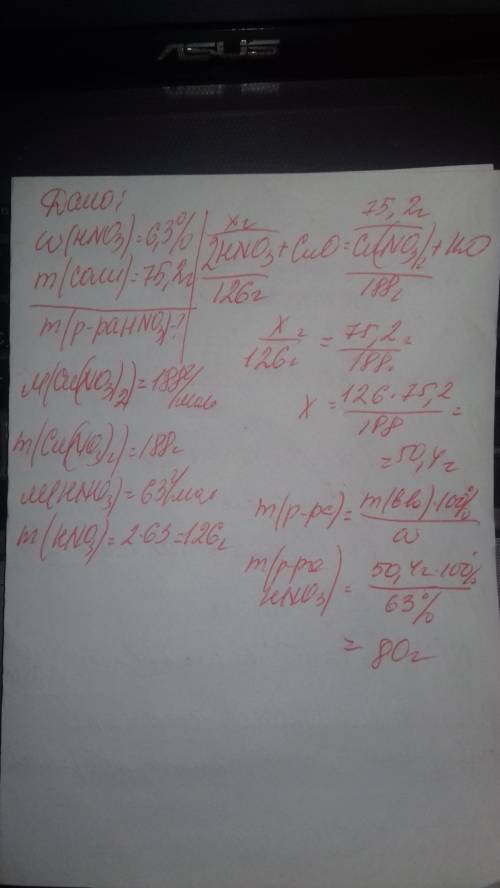 ASUS
Дано:
w(HNO3)=6,3%
m(соли)=75,2г
m(р-раHNO3)-?
M(Cu(NO3)2)=188г/моль
m(Cu(NO3)2)=188г
M(HNO3)=63г/мол
m(HNO3)=2·63=126г
xг 75,2г
2HNO3+CuO=Cu(NO3)2+H2O
126г 188г
xг/126г = 75,2г/188г
x = 126·75,2/188 =
=50,4г
m(р-ра)= m(в-во)·100%/w
m(р-ра HNO3) = 50,4г·100%/63%
= 80г